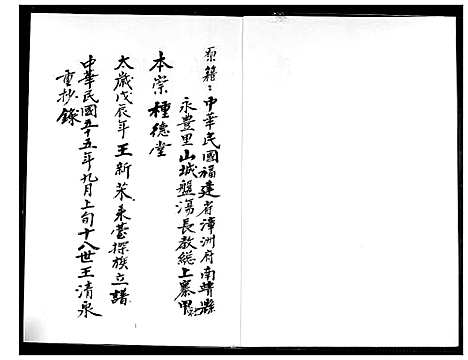 原籍：中華民國福建省漳洲府南靖縣
永豊里山城盤湯長教総上寨甲
本崇種德堂
太歲戊辰年王新苿來臺探族立譜
中華民國五十五年九月上旬十八世王清泉
重抄錄